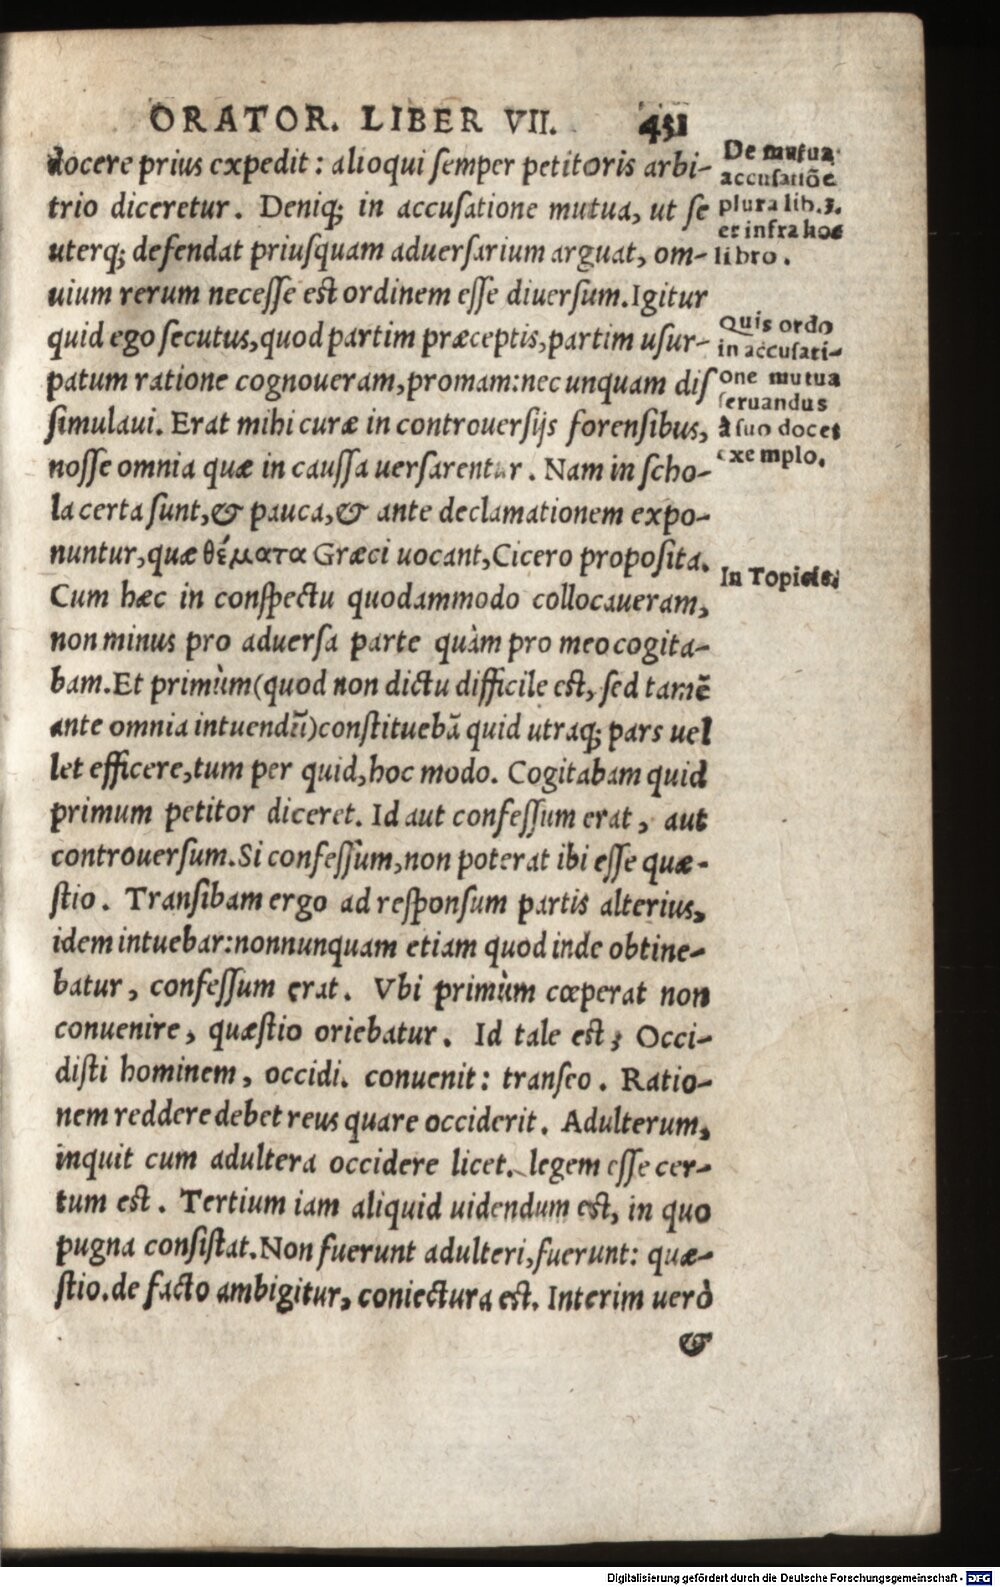 ORATOR. LIBER VII. 451
docere prius expedit : alioqui ſemper petitoris arbi-
trio diceretur. Deniq; in accuſatione mutua, ut ſe
uterq; defendat priuſquam aduerſarium arguat, om-
uium rerum neceſſe est ordinem eſſe diuerſum. Igitur
quid ego ſecutus, quod partim præceptis, partim uſur-
patum ratione cognoueram, promam: nec unquam diſ
ſimulaui. Erat mihi curæ in controuerſijs forenſibus,
noſſe omnia quæ in cauſſa uerſarentur. Nam in ſcho-
la certa ſunt, & pauca, & ante declamationem expo-
nuntur, quæ θέματα Græci uocant, Cicero propoſita.
Cum hæc in conſpectu quodammodo collocaueram,
non minus pro aduerſa parte quàm pro meo cogita-
bam. Et primùm (quod non dictu difficile est, ſed tamẽ
ante omnia intuendũ) conſtituebã quid utraq; pars uel
let efficere, tum per quid, hoc modo. Cogitabam quid
primum petitor diceret. Id aut confeſſum erat, aut
controuerſum. Si confeſſum, non poterat ibi eſſe quæ-
ſtio. Tranſibam ergo ad reſponſum partis alterius,
idem intuebar: nonnunquam etiam quod inde obtine-
batur, confeſſum erat. Vbi primùm cœperat non
conuenire, quæſtio oriebatur. Id tale est; Occi-
diſti hominem, occidi. conuenit: tranſeo. Ratio-
nem reddere debet reus quare occiderit. Adulterum,
inquit cum adultera occidere licet. legem eſſe cer-
tum est. Tertium iam aliquid uidendum est, in quo
pugna conſiſtat. Non fuerunt adulteri, fuerunt: quæ-
ſtio. de facto ambigitur, coniectura est. Interim uerò
&
De mutua
accuſatiõe
plura lib. 3.
et infra hoc
libro.
Quis ordo
in accuſati-
one mutua
ſeruandus
à ſuo docet
exemplo.
In Topicis.
Digitalisierung gefördert durch die Deutsche Forschungsgemeinschaft - DFG